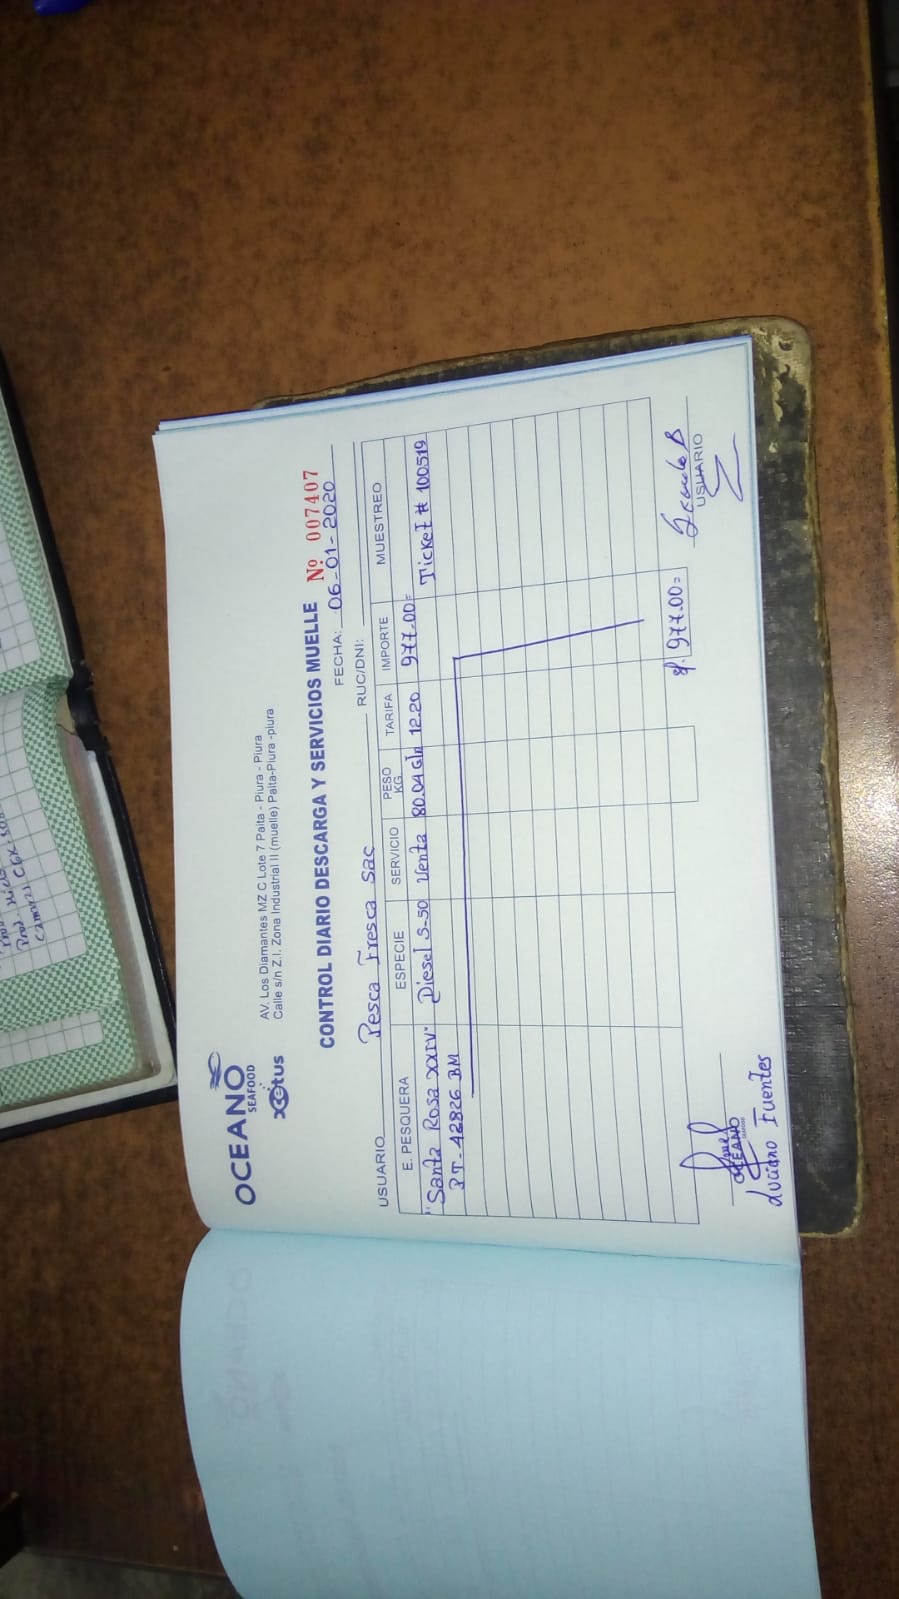 OCEANO
SEAFOOD
xetus
AV. Los Diamantes MZ C Lote 7 Paita - Piura - Piura
Calle s/n Z.I. Zona Industrial II (muelle) Paita-Piura -piura
CONTROL DIARIO DESCARGA Y SERVICIOS MUELLE Nº 007407
FECHA: 06-01-2020
USUARIO Pesca Fresca Sac RUC/DNI:
E. PESQUERA ESPECIE SERVICIO PESO KG. TARIFA IMPORTE MUESTREO
"Santa Rosa XXIV" Diesel S-50 Venta 80.04 Gln 12.20 977.00= Ticket # 100519
PT-42826 BM
S/. 977.00=
OCEANO
SEAFOOD
USUARIO
Luciano Fuentes
Prod.